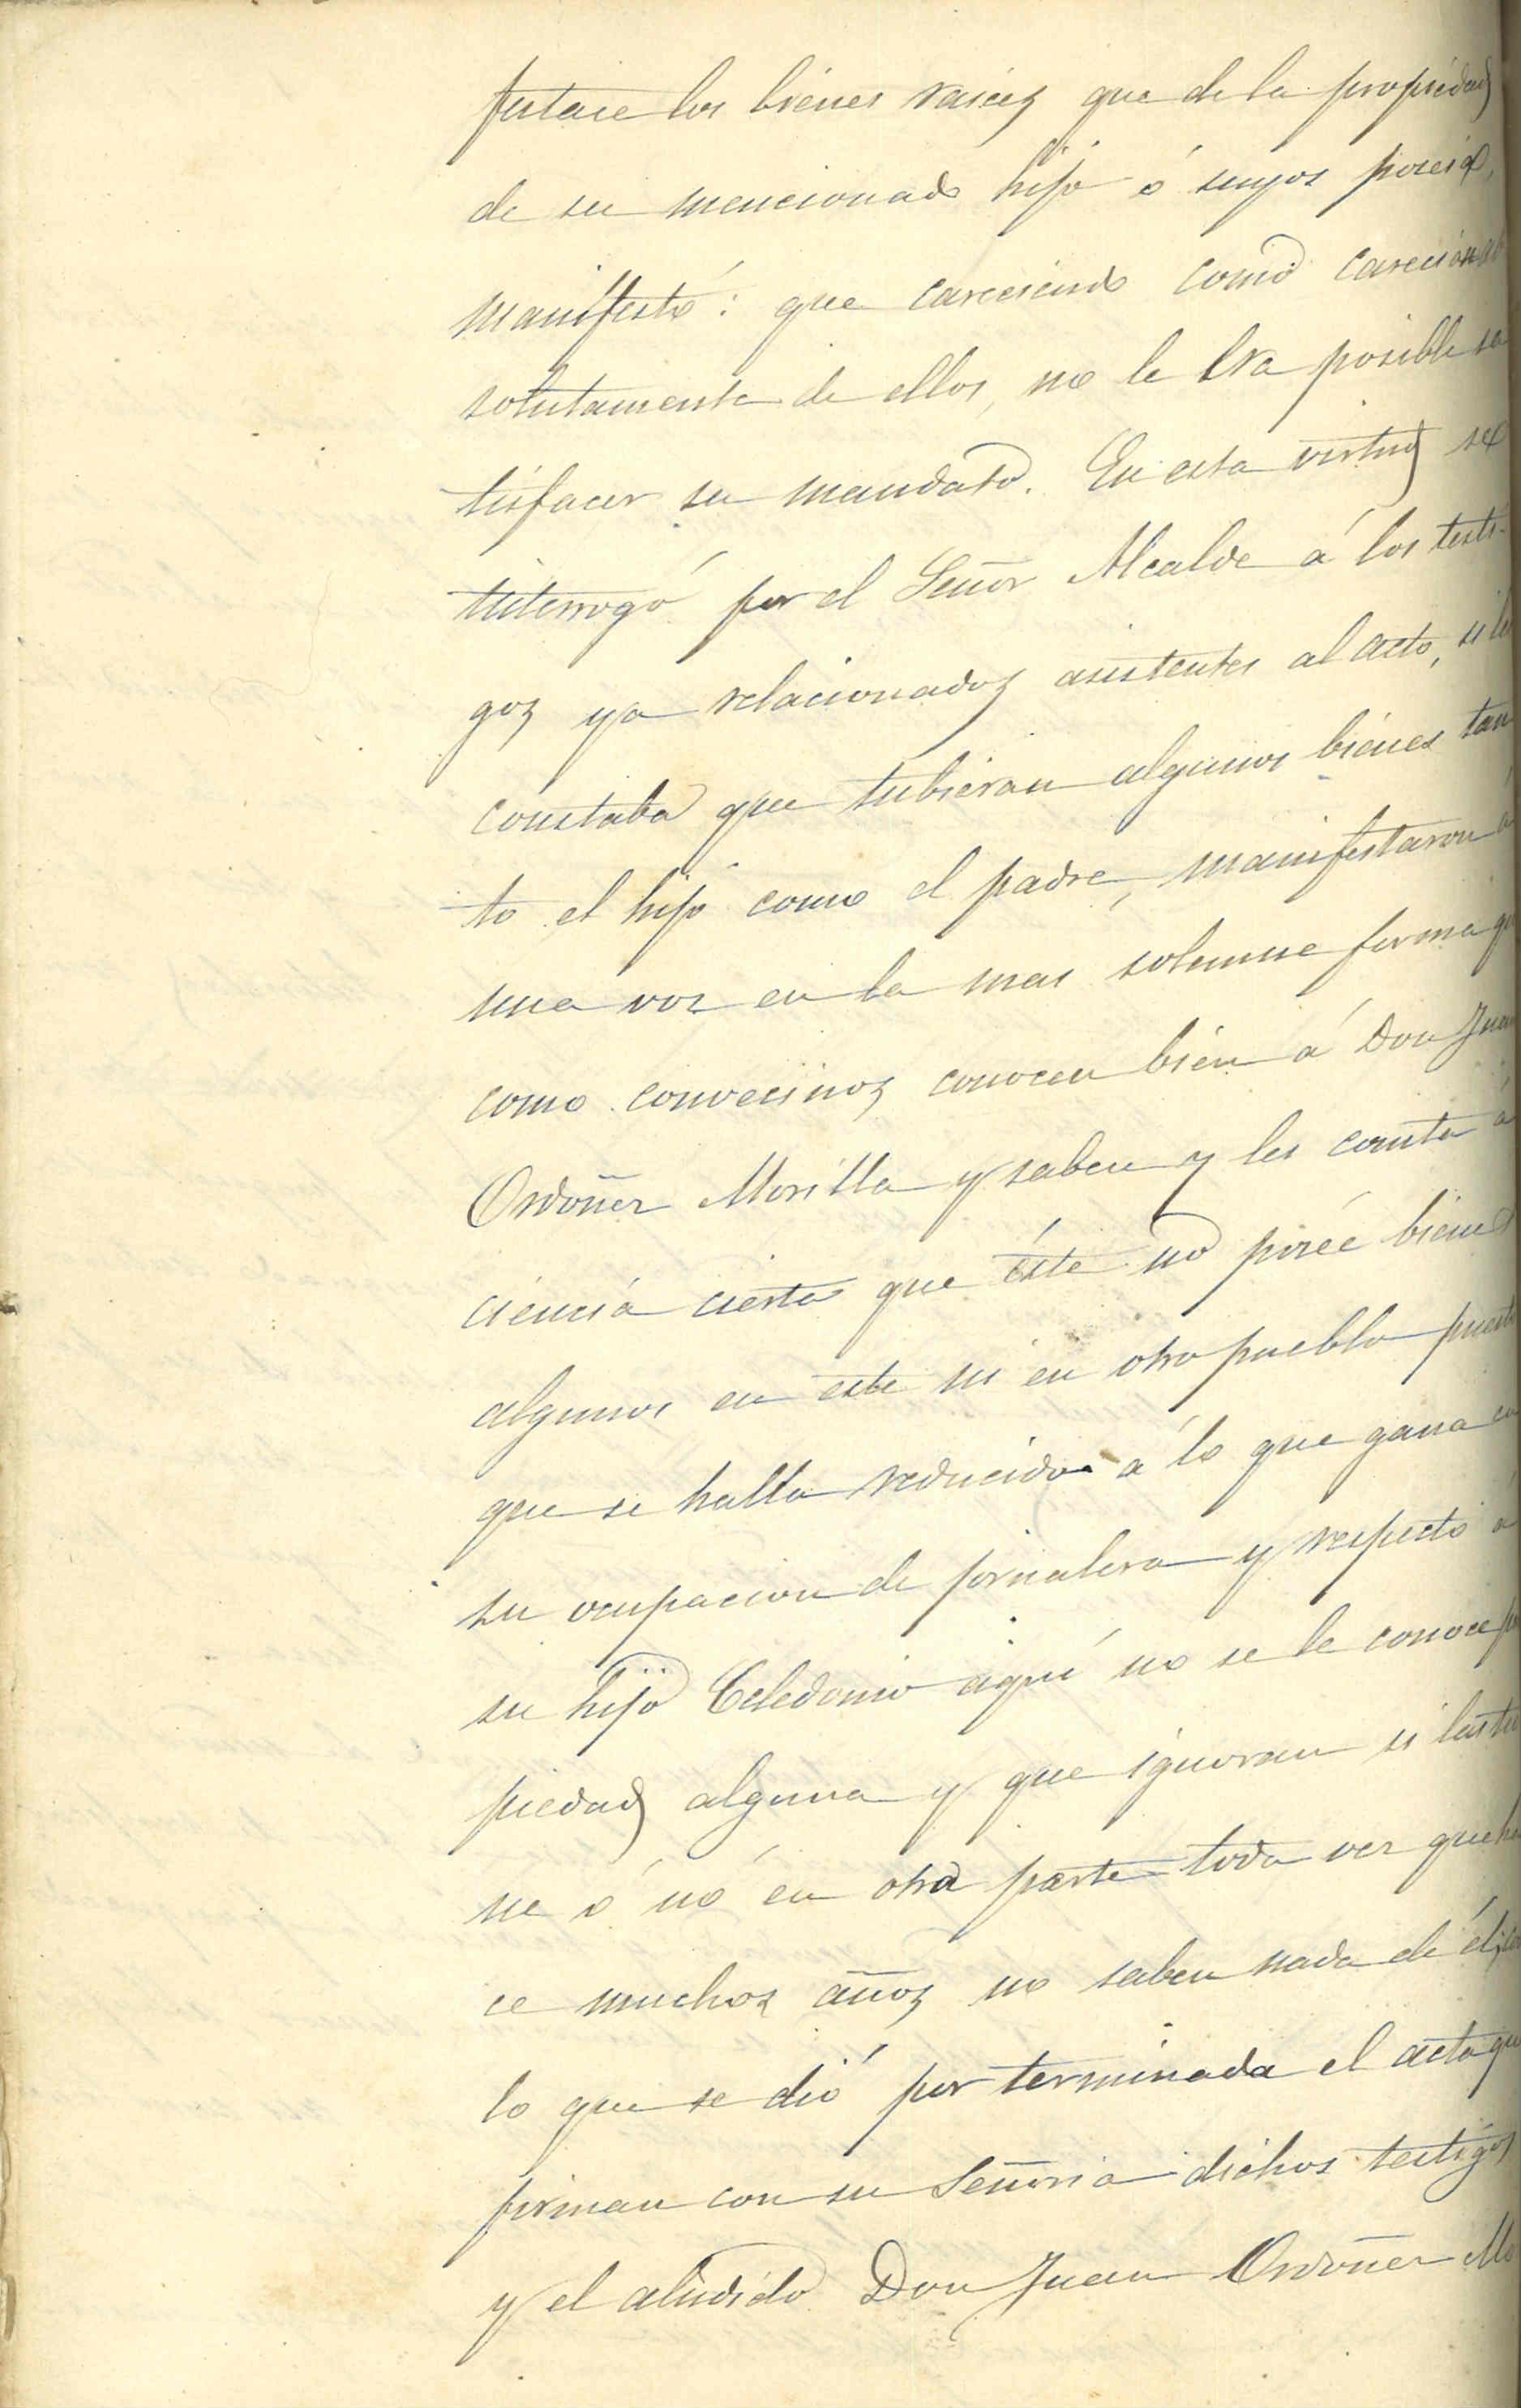 festase los bienes raices que de la propiedad
de su mencionado hijo ó suyos poseia,
manifestó: que careciendo como carecian ab
solutamente de ellos, no le era posible sa
tisfacer su mandato. En esta virtud se
interrogó por el Señor Alcalde á los testi-
gos ya relacionados asistentes al acto, si les
constaba que tubieran algunos bienes tan
to el hijo como el padre, manifestaron á
una voz en la mas solemne forma que
como convecinos conocen bien á Don Juan
Ordoñez Morilla y saben y les consta á
ciencia cierta que éste no posée bienes
algunos en este ni en otro pueblo puesto
que se halla reducido á lo que gana en
su ocupacion de jornalero y respecto á
su hijo Celedonio aqui no se le conoce pro
piedad alguna y que ignoran si las tie
ne ó nó en otra parte toda vez que ha
ce muchos años no saben nada de él; con
lo que se dió por terminada el acta que
firman con su Señoria dichos testigos
y el aludido Don Juan Ordoñez Mo